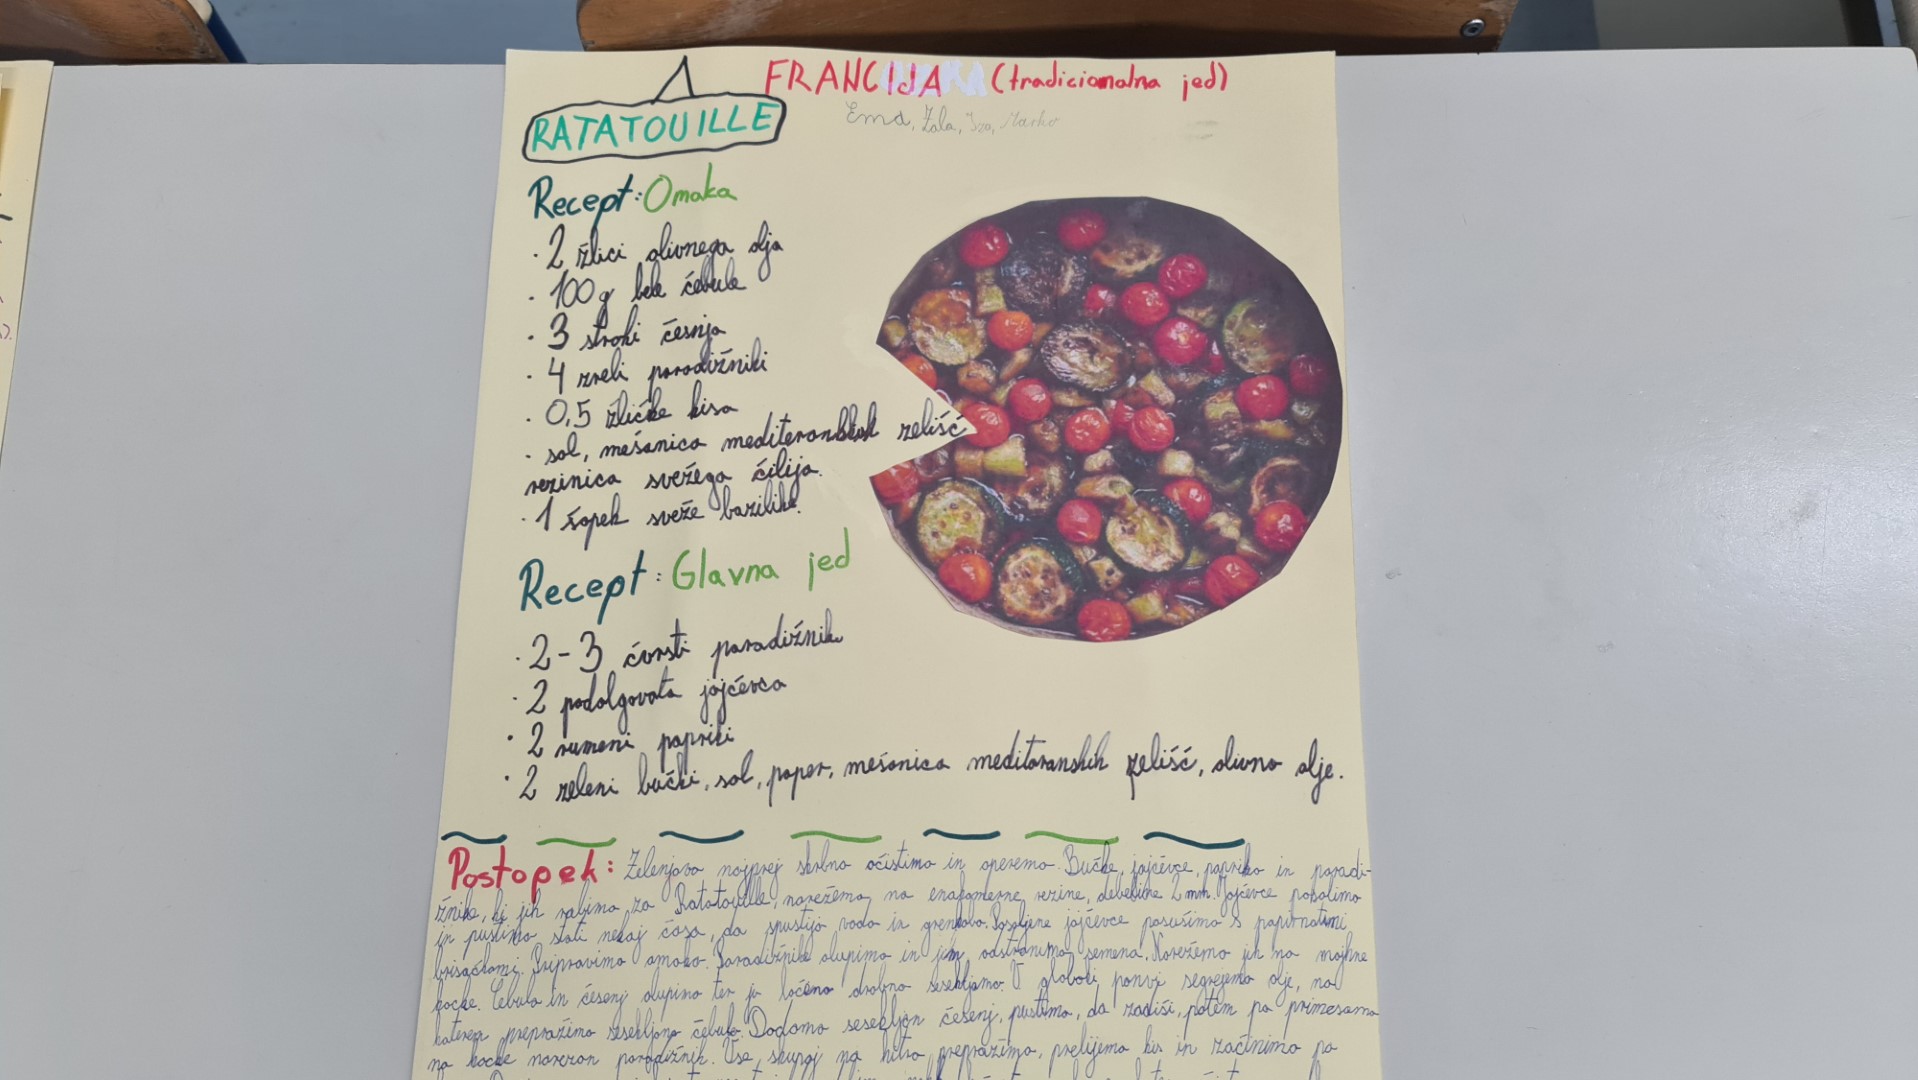 FRANCIJA (tradicionalna jed)
RATATOUILLE
Ema, Zala, Iza, Marko
Recept: Omaka
· 2 žlici olivnega olja
· 100 g bele čebule
· 3 stroki česnja
· 4 zreli paradižniki
· 0,5 žličke kisa
· sol, mešanica mediteranskih zelišč
rezinica svežega čilija.
· 1 šopek sveže bazilike.
Recept: Glavna jed
· 2-3 čvrsti paradižnik
· 2 podolgovata jajčevca
· 2 rumeni papriki
· 2 zeleni bučki, sol, poper, mešanica mediteranskih zelišč, olivno olje.
Postopek: Zelenjavo najprej skrbno očistimo in operemo. Bučke, jajčevce, papriko in paradi-
žnike, ki jih rabimo za Ratatouille, narežemo na enakomerne rezine, debeline 2 mm. Jajčevce posolimo
in pustimo stati nekaj časa, da spustijo vodo in grenkobo. Posoljene jajčevce posušimo s papirnatimi
brisačkami. Pripravimo omako. Paradižnike olupimo in jim odstranimo semena. Narežemo jih na majhne
kocke. Čebulo in česenj olupimo ter ju ločeno drobno sesekljamo. V globoki ponvi segrejemo olje, na
katerem prepražimo sesekljano čebulo. Dodamo sesekljan česenj, pustimo, da zadiši, potem pa primešamo
na kocke narezan paradižnik. Vse skupaj na hitro prepražimo, prelijemo kis in začinimo po